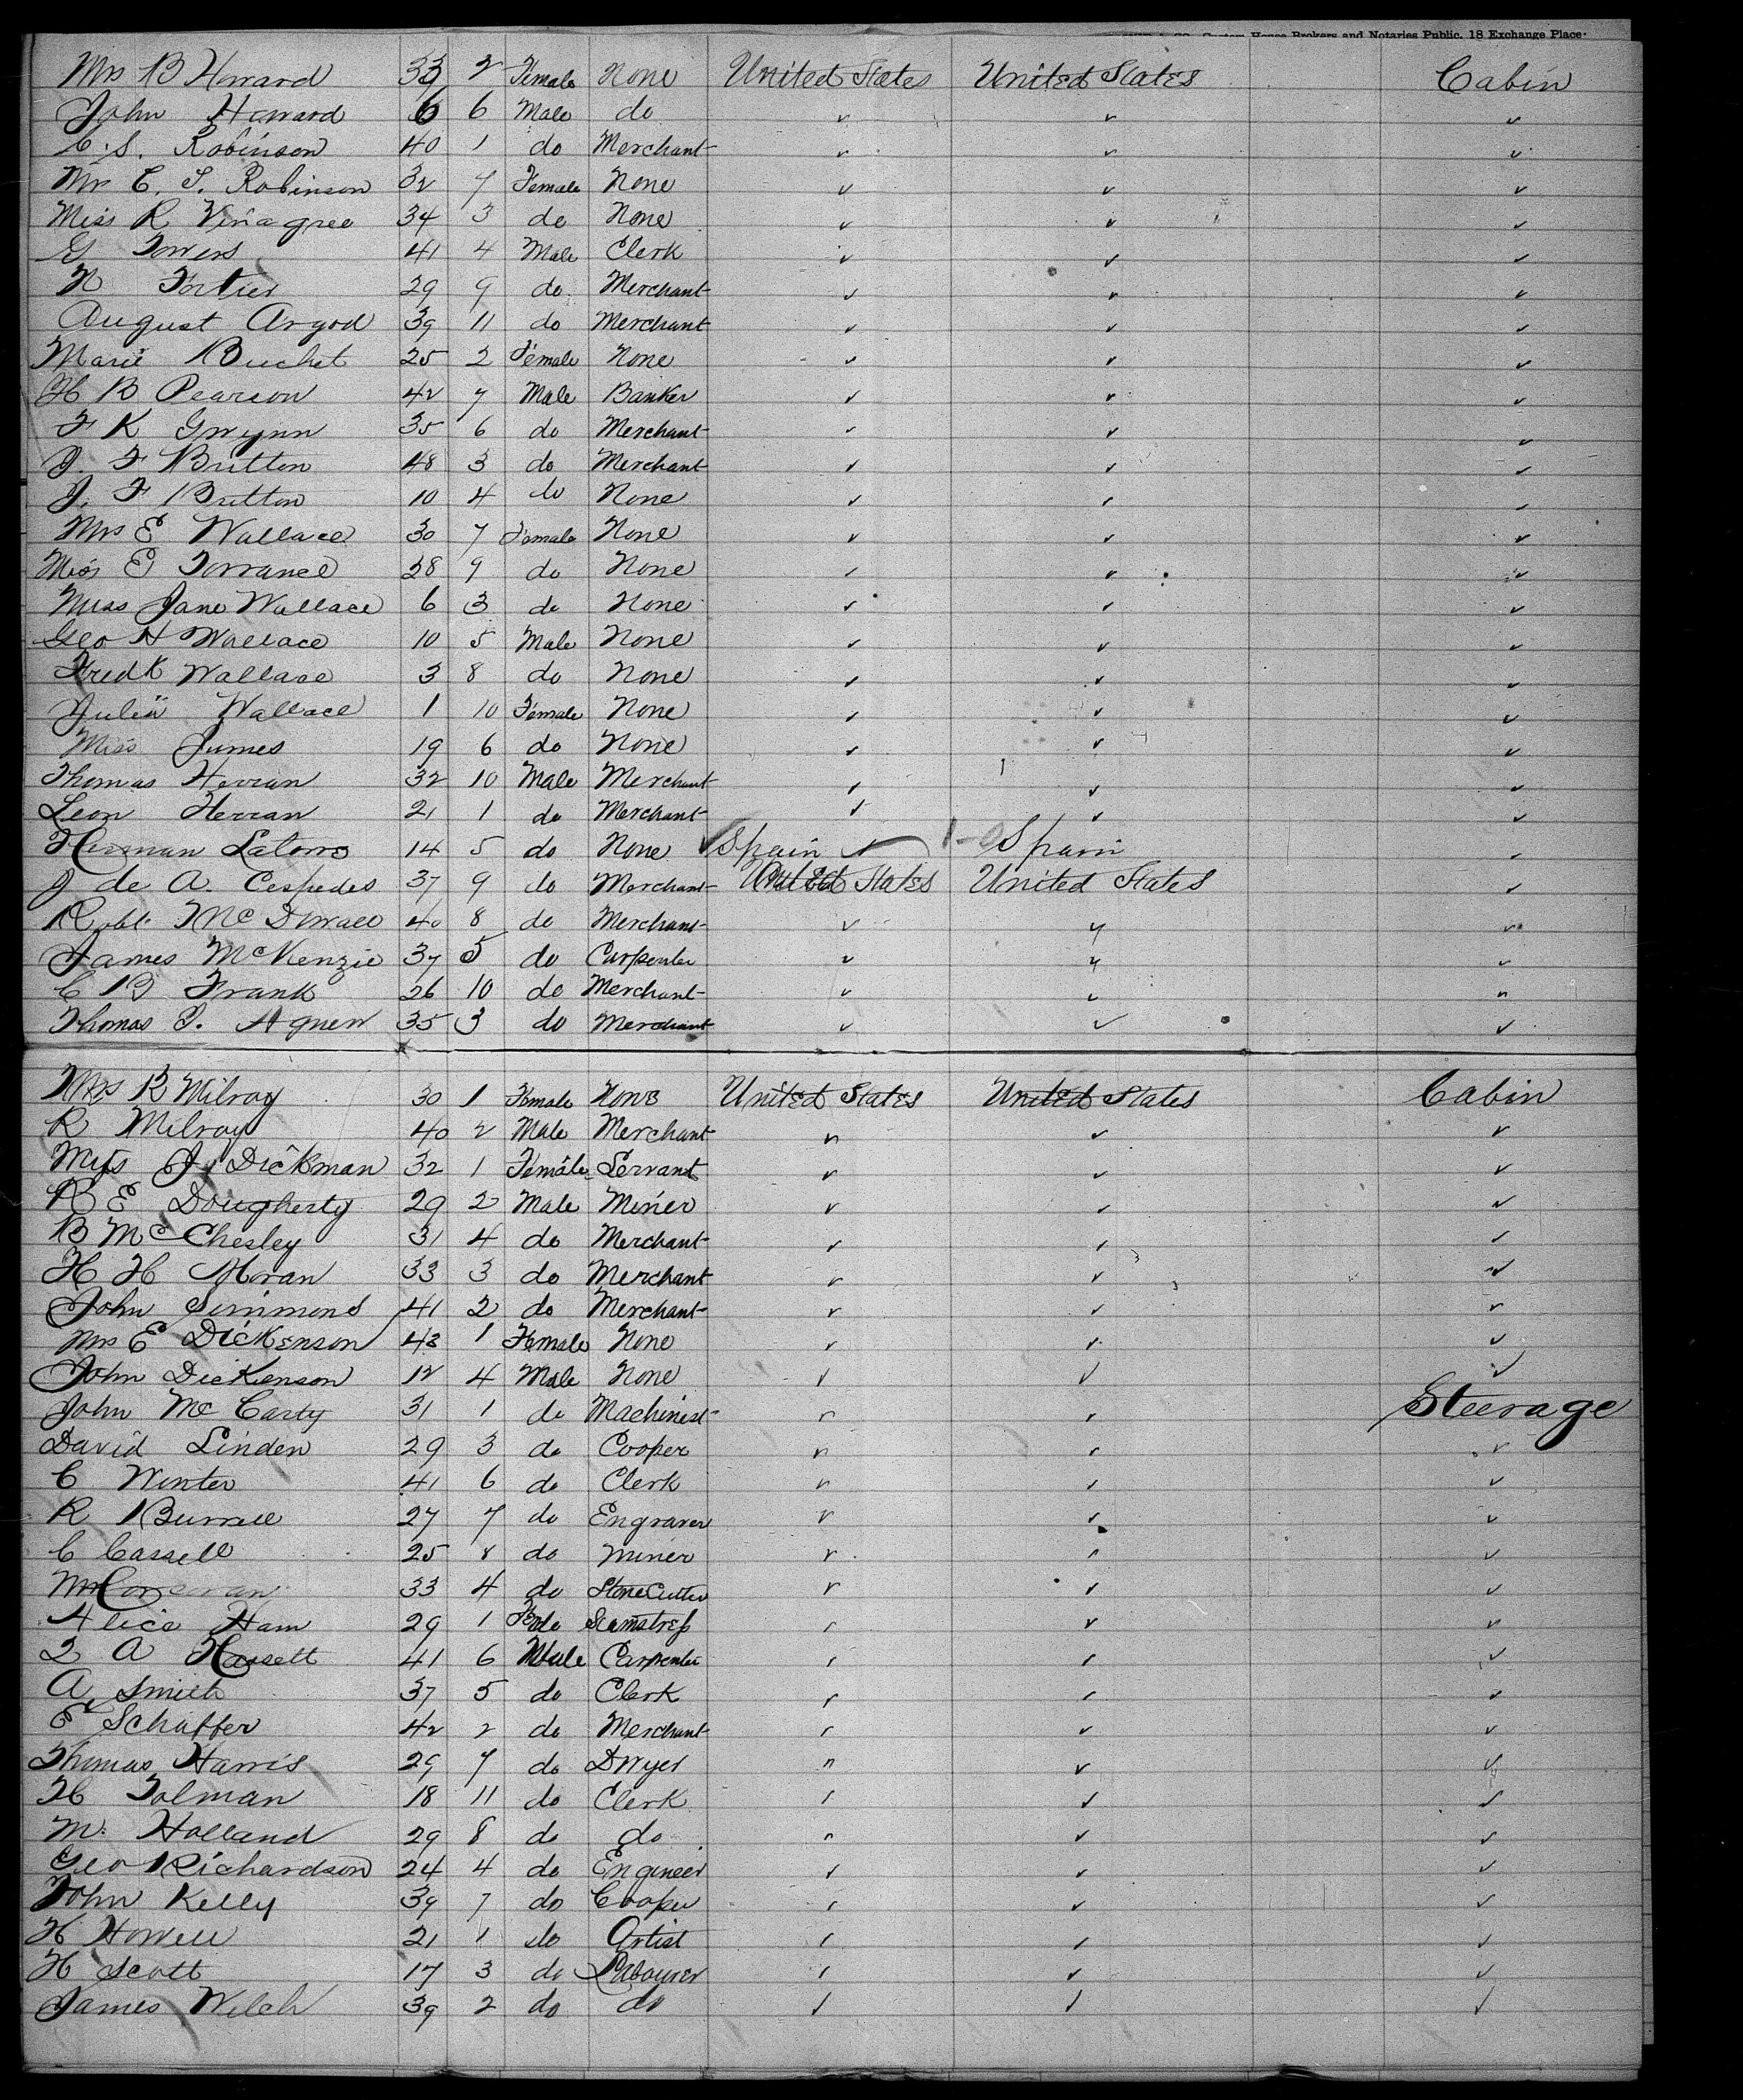 Custom House Brokers and Notaries Public, 18 Exchange Place.
Mrs B Howard 33 2 Female None United States United States Cabin
John Howard 6 6 Male do
C. S. Robinson 40 1 do Merchant
Mrs C. S. Robinson 32 7 Female None
Miss R Vinagree 34 3 do None
G Towers 41 4 Male Clerk
N Fortier 29 9 do Merchant
August Argod 39 11 do Merchant
Marie Buchet 25 2 Female None
H B Pearson 42 7 Male Banker
F K Gwynn 35 6 do Merchant
J. F Britton 48 3 do Merchant
J. F Britton 10 4 do None
Mrs E Wallace 30 7 Female None
Miss E Torrance 28 9 do None
Miss Jane Wallace 6 3 do None
Geo H Wallace 10 5 Male None
Fredk Wallace 3 8 do None
Julia Wallace 1 10 Female None
Miss James 19 6 do None
Thomas Herran 32 10 Male Merchant
Leon Herran 21 1 do Merchant
Herman Latorre 14 5 do None Spain Spain
J de A. Cespedes 37 9 do Merchant United States United States
Robt. McDowall 40 8 do Merchant
James McKenzie 37 5 do Carpenter
C B Frank 26 10 do Merchant
Thomas J. Agnew 35 3 do Merchant
Mrs R Milroy 30 1 Female None United States United States Cabin
R Milroy 40 2 Male Merchant
J Dickman 32 1 Female Servant
R E Dougherty 29 2 Male Miner
B McChesley 31 4 do Merchant
H H Moran 33 3 do Merchant
John Simmons 41 2 do Merchant
Mrs E Dickenson 43 1 Female None
John Dickenson 12 4 Male None
John McCarty 31 1 do Machinist Steerage
David Linden 29 3 do Cooper
C Winter 41 6 do Clerk
R Burrell 27 7 do Engraver
C Cassell 25 8 do Miner
Wm Corcoran 33 4 do Stone Cutter
Alice Ham 29 1 Fmle Seamstress
A Hassett 41 6 Male Carpenter
A Smith 37 5 do Clerk
E Schaffer 42 2 do Merchant
Thomas Harris 29 7 do Dwyer
H Tolman 18 11 do Clerk
M. Holland 29 8 do do
Geo Richardson 24 4 do Engineer
John Kelly 39 7 do Cooper
H Howell 21 1 do Artist
H Scott 17 3 do Labourer
James Welch 39 2 do do